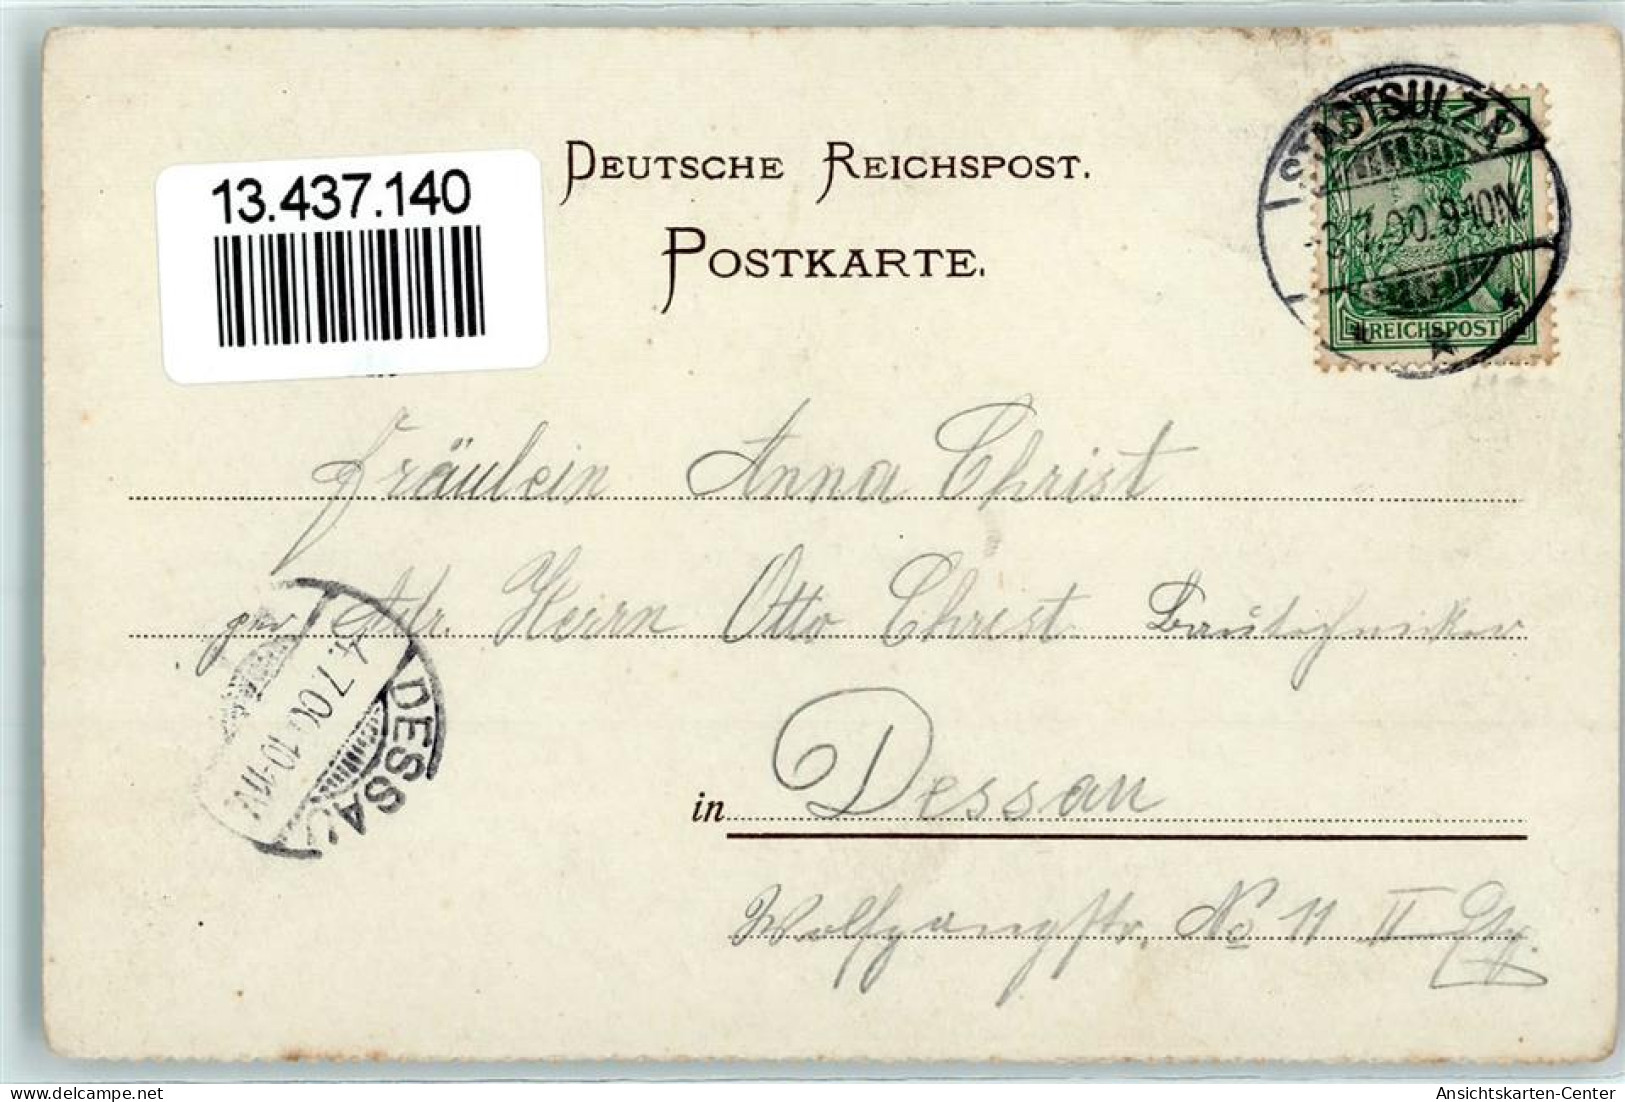 13.437.140
DEUTSCHE REICHSPOST.
POSTKARTE.
STADTSULZA
7.00. 9-10N.
REICHSPOST
Fräulein Anna Christ
per Adr. Herrn Otto Christ Bautechniker
4.7.00. 10-11V.
DESSAU
in Dessau
Wolfgangstr. No 11 II Etg.
oldthing.de
Ansichtskarten-Center